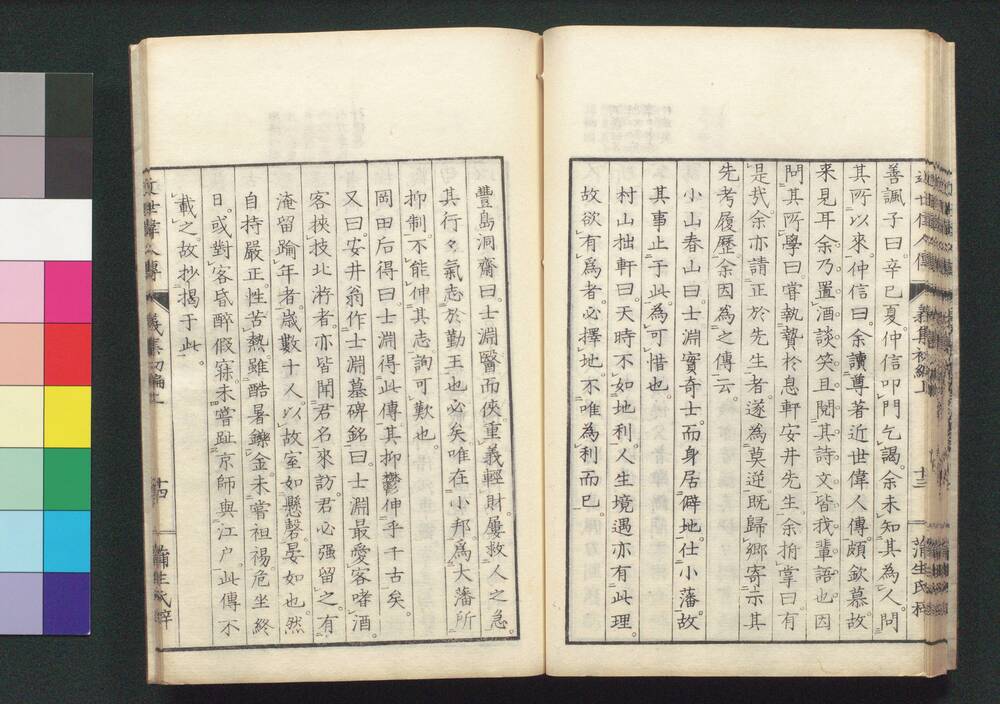 善諷子曰。辛巳夏。仲信叩門乞謁。余未知其為人。問
其所以來。仲信曰。余讀尊著近世偉人傳。頗欽慕。故
来見耳。余乃置酒談笑。且閱其詩文。皆我輩語也。因
問其所學。曰。嘗執贄於息軒安井先生。余拍掌曰。有
是哉。余亦請正於先生者。遂為莫逆。既歸鄉。寄示其
先考履歷。余因為之傳云。
小山春山曰。士淵實奇士。而身居僻地。仕小藩。故
其事止于此。為可惜也。
村山拙軒曰。天時不如地利。人生境遇亦有此理。
故欲有為者。必擇地。不唯為利而已。
豐島洞齋曰。士淵醫而俠。重義輕財。屢救人之急。
其行々氣志。於勤王也必矣。唯在小邦。為大藩所
抑制。不能伸其志。詢可歎也。
岡田后得曰。士淵得此傳。其抑鬱伸乎千古矣。
又曰。安井翁作士淵墓碑銘曰。士淵最愛客嗜酒。
客挾技北游者。亦皆聞君名來訪。君必强留之。有
淹留踰年者。歲數十人。以故室如懸磬。晏如也。然
自持嚴正。性苦熱。雖酷暑鑠金。未嘗袒裼。危坐終
日。或對客昏醉假寐。未嘗趾京師與江戶。此傳不
載之。故抄揭于此。
近世偉人傳
義集初編上
十三
蒲生氏梓
近世偉人傳
義集初編上
十四
蒲生氏梓